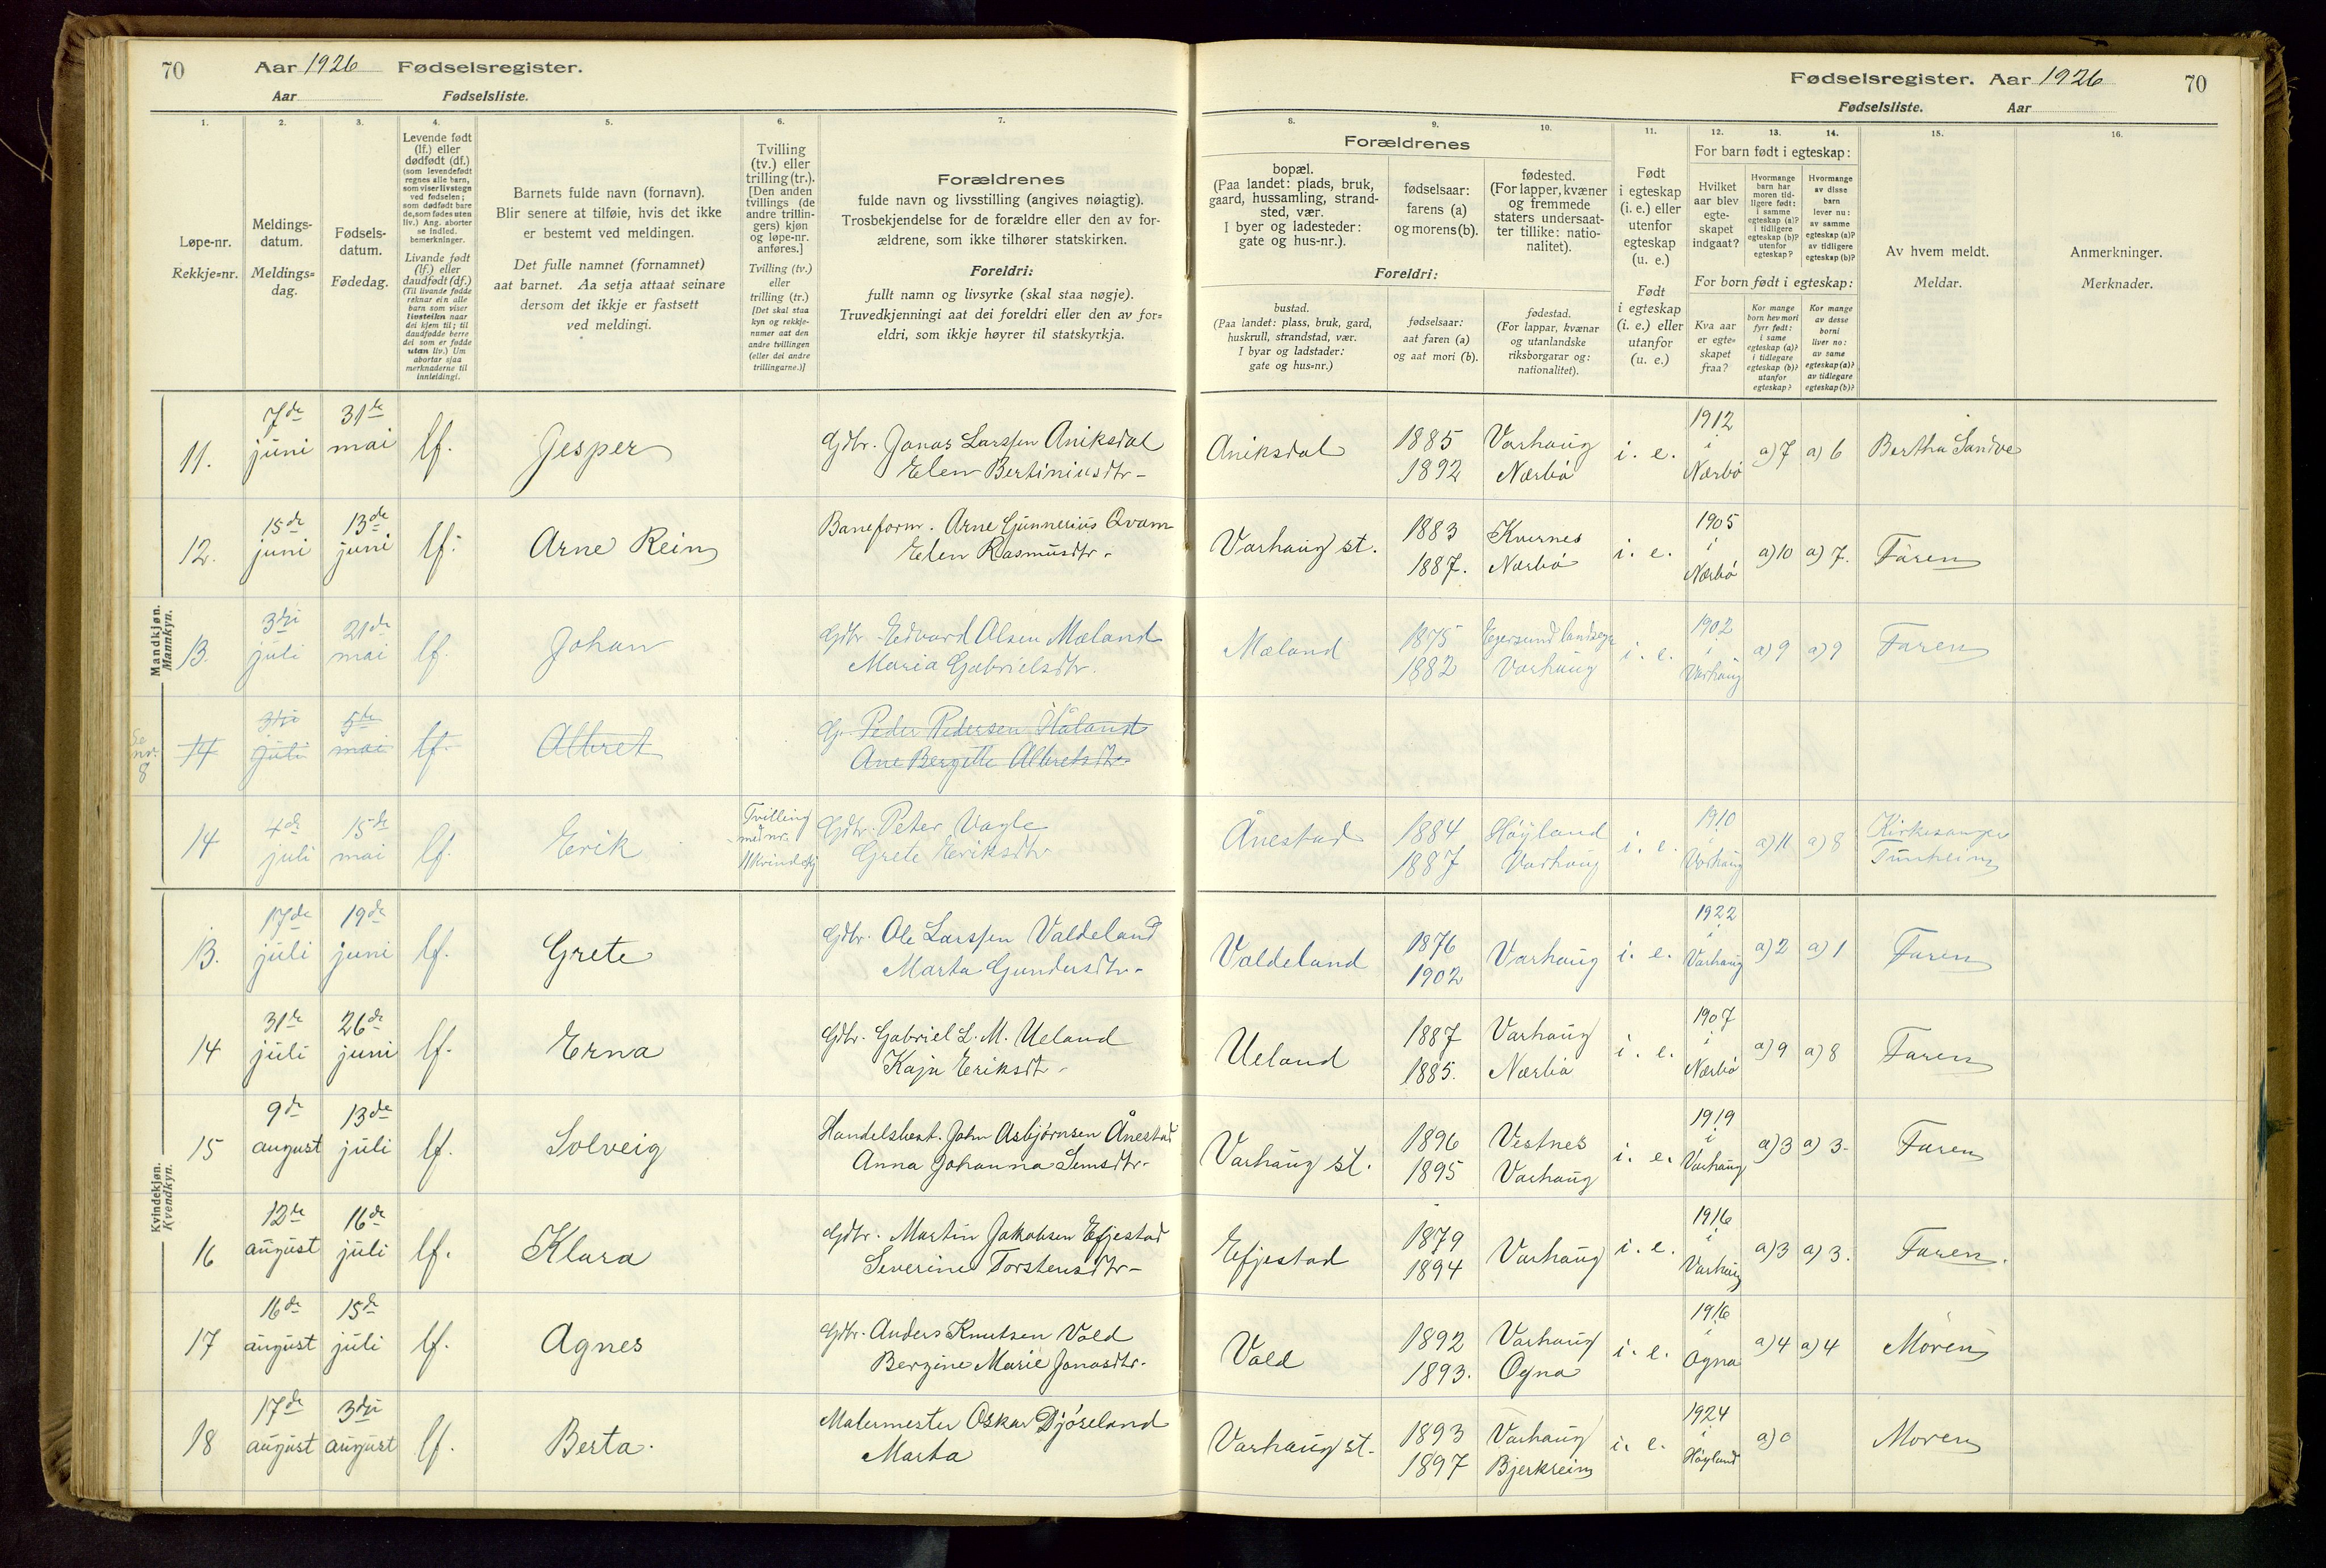 70 Aar 1926 Fødselsregister.
Aar Fødselsliste.
1. 2. 3. 4. 5. 6. 7.
Løpe-nr.
Rekkje-nr.
Meldings-
datum.
Meldings-
dag.
Fødsels-
datum.
Fødedag.
Levende født
(lf.) eller
dødfødt (df.)
(som levendefødt
regnes alle barn,
som viser livstegn
ved fødselen;
som dødfødt bare
de, som fødes uten
liv.) Ang. aborter
se indled.
bemerkninger.
Livande født
(lf.) eller
daudfødt (df.)
(Til livande fødde
reknar ein alle
barn som viser
livsteikn naar
dei kjem til; til
daudfødde berre
dei som er fødde
utan liv.) Um
abortar sjaa
merknaderne til
innleidingi.
Barnets fulde navn (fornavn).
Blir senere at tilføie, hvis det ikke
er bestemt ved meldingen.
Det fulle namnet (fornamnet)
aat barnet. Aa setja attaat seinare
dersom det ikkje er fastsett
ved meldingi.
Tvilling
(tv.) eller
trilling (tr.).
[Den anden
tvillings (de
andre trillin-
gers) kjøn
og løpe-nr.
anføres.]
Tvilling (tv.)
eller
trilling (tr.)
[Det skal staa
kyn og rekkje-
numer aat den
andre tvillingen
(eller dei andre
trillingarne.)]
Forældrenes
fulde navn og livsstilling (angives nøiagtig).
Trosbekjendelse for de forældre eller den av for-
ældrene, som ikke tilhører statskirken.
Foreldri:
fullt namn og livsyrke (skal staa nøgje).
Truvedkjenningi aat dei foreldri eller den av for-
eldri, som ikkje høyrer til statskyrkja.
Mandkjøn.
Mannkyn.
11. 7de juni 31te mai lf. Jesper Gdbr. Jonas Larssen Aniksdal
Elen Bertiniusdtr -
12. 15de juni 13de juni lf. Arne Rein Baneform. Arne Gunnerius Qvam
Elen Rasmusdtr -
13. 3dji juli 21de mai lf. Johan Gdbr. Edvard Olsen Mæland
Maria Gabrielsdtr.
Se nr. 8
14 3dji juli 5te mai lf. Albret G. Peder Pedersen Håland
Ane Bergitte Albretsdtr.
14 4de juli 15de mai lf. Erik Tvilling med nr. 11 Kvindekj Gdbr. Peter Vagle
Grete Eriksdtr
Kvindekjøn.
Kvendkyn.
13. 17de juli 19de juni lf. Grete Gdbr. Ole Larssen Valdeland
Marta Gundersdtr -
14 31te juli 26de juni lf. Erna Gdbr. Gabriel L. M. Ueland
Kaja Eriksdt -
15 9de august 13de juli lf. Solveig Handelsbest. John Asbjørnsen Ånestad
Anna Johanna Semsdtr-
16 12te august 16de juli lf. Klara Gdbr. Martin Jakobsen Efjestad
Severine Torstensdtr -
17 16de august 15de juli lf. Agnes Gdbr. Anders Knutsen Vold
Bergine Marie Jonasdtr.
18 17de august 3dji august lf. Berta. Malermester Oskar Djøseland
Marta
Fødselsregister. Aar 1926 70
Fødselsliste. Aar
8. 9. 10. 11. 12. 13. 14. 15. 16.
Forældrenes
bopæl.
(Paa landet: plads, bruk,
gaard, hussamling, strand-
sted, vær.
I byer og ladesteder:
gate og hus-nr.).
fødselsaar:
farens (a)
og morens (b).
fødested.
(For lapper, kvæner
og fremmede
staters undersaat-
ter tillike: natio-
nalitet).
Foreldri:
bustad.
(Paa landet: plass, bruk, gard,
huskrull, strandstad, vær.
I byar og ladstader:
gate og hus-nr.)
fødselsaar:
aat faren (a)
og aat mori (b).
fødestad.
(For lappar, kvænar
og utanlandske
riksborgarar og:
nationalitet).
Født
i egteskap
(i. e.) eller
utenfor
egteskap
(u. e.)
Født
i egteskap
(i. e.) eller
utanfor
(u. e.)
For barn født i egteskap:
Hvilket
aar blev
egte-
skapet
indgaat?
Hvormange
barn har
moren tid-
ligere født:
i samme
egteskap (a)?
i tidligere
egteskap (b)?
utenfor
egteskap?
Hvormange
av disse
barn
lever nu:
av samme
egteskap (a)?
av tidligere
egteskap (b)?
For born født i egteskap:
Kva aar
er egte-
skapet
fraa?
Kor mange
born hev mori
fyrr født:
i same
egteskap (a)?
i tidlegare
egteskap (b)?
utanfor
egteskap?
Kor mange
av desse
borni
liver no:
av same
egteskap (a)?
av tidlegare
egteskap (b)?
Av hvem meldt.
Meldar.
Anmerkninger.
Merknader.
Aniksdal 1885 1892 Varhaug Nærbø i. e. 1912 i Nærbø a) 7 a) 6 Bertha Sandve
Varhaug st. 1883 1887. Kvernes Nærbø i. e. 1905 i Nærbø a) 10 a) 7. Faren
Mæland 1875 1882 Egersund landsogn Varhaug i. e. 1902 i Varhaug a) 9 a) 9 Faren
Ånestad 1884 1887 Høyland Varhaug i. e. 1910 i Varhaug a) 11 a) 8 Kirkesanger Tunheim
Valdeland 1876 1902 Varhaug i. e. 1922 i Varhaug a) 2 a) 1 Faren
Ueland 1887 1885. Varhaug Nærbø i. e. 1907 i Nærbø a) 9 a) 8 Faren
Varhaug st. 1896 1895 Vestnes Varhaug i. e. 1919 i Varhaug a) 3 a) 3- Faren
Efjestad 1879 1894 Varhaug i. e. 1916 i Varhaug a) 3 a) 3. Faren.
Vold 1892 1893. Varhaug Ogna i. e. 1916 i Ogna a) 4 a) 4 Moren
Varhaug st. 1893 1897 Varhaug Bjerkreim i. e. 1924 i Høyland a) 0 Moren